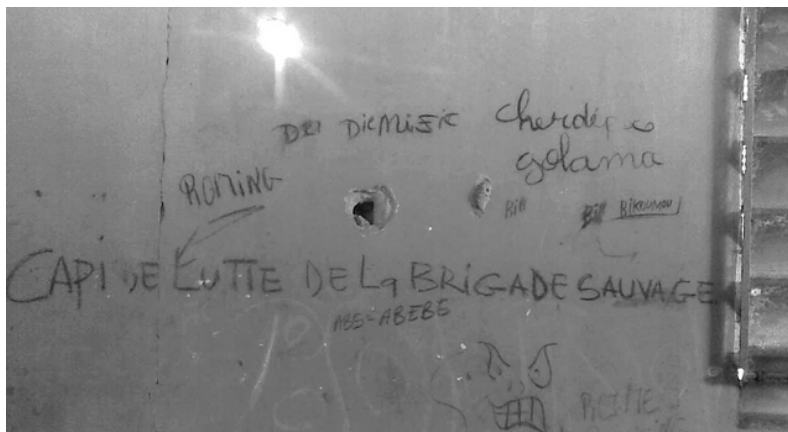 DRI DICMISIC
cherdép e
golama
ROMING
Bill
Bill BIKOUMOU
CAPI DE LUTTE DE La BRIGADE SAUVAGE
ABS-ABEBE